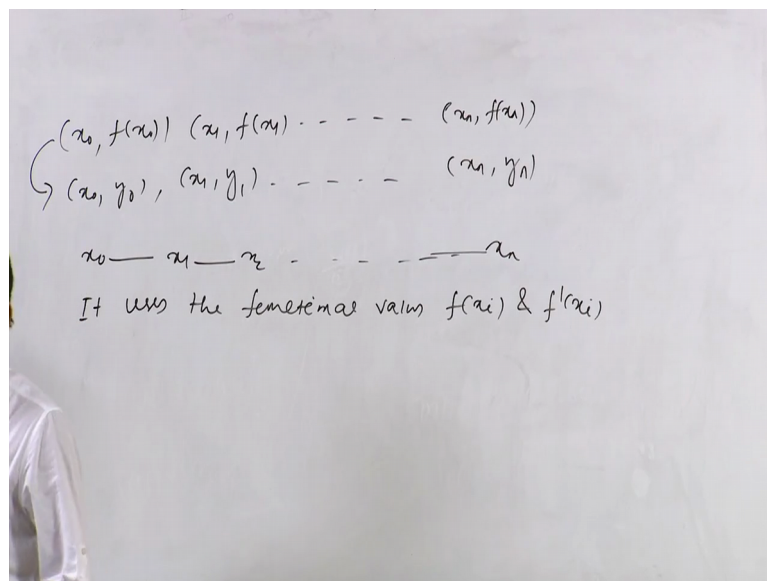 (x₀, f(x₀)) (x₁, f(x₁) - - - - - (xₙ, f(xₙ))
(x₀, y₀), (x₁, y₁) - - - - - (xₙ, yₙ)
x₀ — x₁ — x₂ - - - - - — xₙ
It uses the functional values f(xᵢ) & f'(xᵢ)